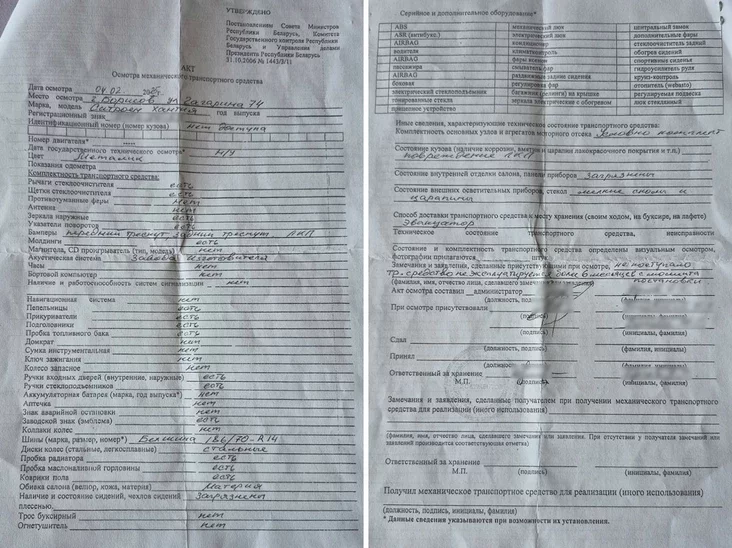 УТВЕРЖДЕНО
Постановлением Совета Министров
Республики Беларусь, Комитета
Государственного контроля Республики
Беларусь и Управления делами
Президента Республики Беларусь
31.10.2006 № 1443/5/11
АКТ
Осмотра механического транспортного средства
Дата осмотра 04.02.
Место осмотра г. Борисов ул Гагарина 74
Марка, модель Ситроен
Регистрационный знак год выпуска
Идентификационный номер (номер кузова) нет доступа
Номер двигателя*
Дата государственного технического осмотра* н/у
Цвет Металик
Показания одометра
Комплектность транспортного средства:
Рычаги стеклоочистителя есть
Щетки стеклоочистителя есть
Противотуманные фары нет
Антенна нет
Зеркала наружные есть
Указатели поворотов есть
Бамперы передний треснут, задний треснут ЛКП
Молдинги есть
Магнитола, CD проигрыватель (тип, модель) нет
Акустическая система Завода изготовителя
Часы нет
Бортовой компьютер нет
Наличие и работоспособность систем сигнализации нет
Навигационная система нет
Пепельницы есть
Прикуриватели есть
Подголовники есть
Пробка топливного бака есть
Домкрат нет
Сумка инструментальная нет
Ключ зажигания нет
Колесо запасное нет
Ручки входных дверей (внутренние, наружные) есть
Ручки стеклоподъемников есть
Аккумуляторная батарея (марка, год выпуска*) нет
Аптечка нет
Знак аварийной остановки нет
Заводской знак (эмблема) есть
Колпаки колес нет
Шины (марка, размер, номер*) Белшина 186/70-R14
Диски колес (стальные, легкосплавные) стальные
Пробка радиатора есть
Пробка маслоналивной горловины есть
Коврики пола есть
Обивка салона (велюр, кожа, материя) материя
Наличие и состояние сидений, чехлов сидений загрязнены
плесенью.
Трос буксирный нет
Огнетушитель нет
Серийное и дополнительное оборудование*
ABS механический люк центральный замок
ASR (антибукс.) электрический люк дополнительные фары
AIRBAG кондиционер стеклоочиститель задний
водителя климатконтроль обогрев сидений
AIRBAG фары ксенон спортивные сиденья
пассажира омыватель фар гидроусилитель руля
AIRBAG раздвижные задние сидения круиз-контроль
боковая регулировка фар отопитель (webasto)
электрический стеклоподъемник багажник (релинги) на крышке регулируемая подвеска
тонированные стекла зеркала электрические с обогревом люк стеклянный
прицепное устройство
Иные сведения, характеризующие техническое состояние транспортного средства:
Комплектность основных узлов и агрегатов моторного отсека Условно комплект
Состояние кузова (наличие коррозии, вмятин и царапин лакокрасочного покрытия и т.п.)
повреждение ЛКП
Состояние внутренней отделки салона, панели приборов загрязнены
Состояние внешних осветительных приборов, стекол мелкие сколы и
царапины
Способ доставки транспортного средства к месту хранения (своим ходом, на буксире, на лафете)
Эвакуатор
Техническое состояние транспортного средства, неисправности
Состояние и комплектность транспортного средства определены визуальным осмотром,
фотографии прилагаются штук
Замечания и заявления, сделанные присутствующими при осмотре, не поступало
Тр. средство не эксплуатируется более 3 месяцев с момента
(фамилия, имя, отчество лица, сделавшего замечания постановки
Акт осмотра составил администратор
(должность,
При осмотре присутствовали
(подпись) (инициалы, фамилия)
Сдал
(должность, подпись) (фамилия, инициалы)
Принял
(должность, подпись) (фамилия, инициалы)
Ответственный за хранение
М.П. (подпись) (инициалы, фамилия)
Замечания и заявления, сделанные получателем при получении механического транспортного
средства для реализации (иного использования)
(фамилия, имя, отчество лица, сделавшего замечание или заявления. При отсутствии у получателя замечаний или
заявлений производится соответствующая отметка)
Ответственный за хранение
М.П. (подпись) (инициалы, фамилия)
Получил механическое транспортное средство для реализации (иного использования)
(должность, подпись, инициалы, фамилия)
* Данные сведения указываются при возможности их установления.